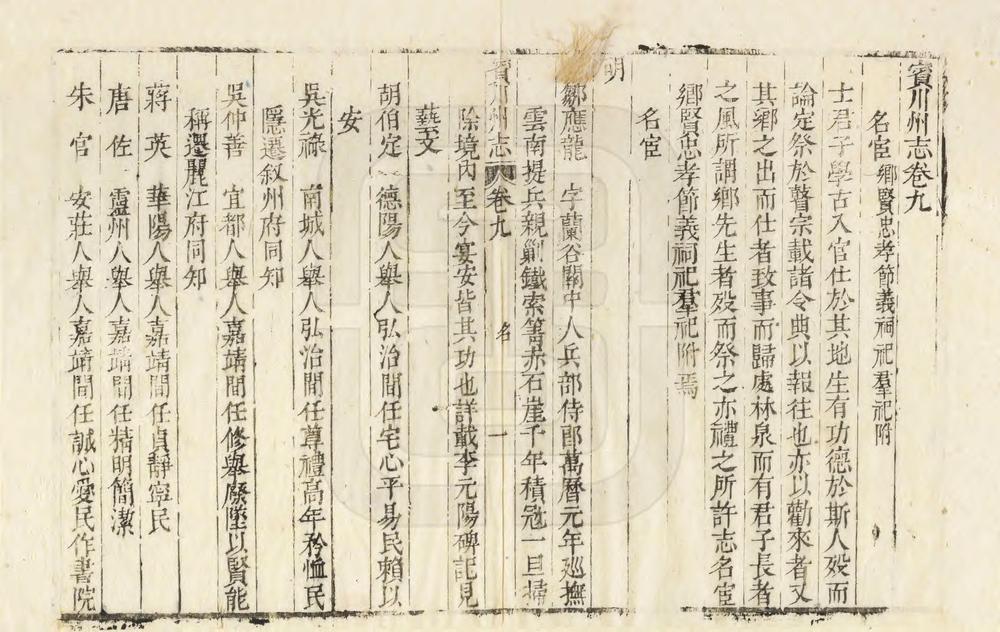 賓川州志卷九
名宦 鄉賢忠孝節義祠祀羣祀附
士君子學古入官仕於其地生有功德於斯人歿而
論定祭於瞽宗載諸令典以報往也亦以勸來者又
其鄉之出而仕者致事而歸處林泉而有君子長者
之風所謂鄉先生者歿而祭之亦禮之所許志名宦
鄉賢忠孝節義祠祀羣祀附焉
名宦
明
鄒應龍 字蘭谷關中人兵部侍郎萬曆元年廵撫
雲南提兵親剿鐵索箐赤石崖千年積冦一旦掃
賓川州志 卷九 名 一
除境內至今宴安皆其功也詳載李元陽碑記見
藝文
胡伯定 德陽人舉人弘治間任宅心平易民賴以
安
吳光祿 南城人舉人弘治間任尊禮高年矜恤民
隱遷叙州府同知
吳仲善 宜都人舉人嘉靖間任修舉廢墜以賢能
稱遷麗江府同知
蔣英 華陽人舉人嘉靖間任貞靜寧民
唐佐 靈州人舉人嘉靖間任精明簡潔
朱官 安莊人舉人嘉靖間任誠心愛民作書院